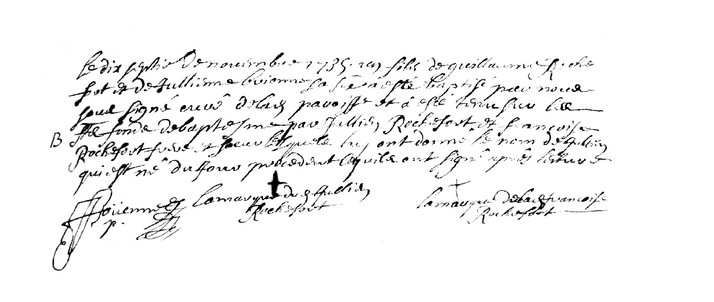 Le dix septie de novembre 1735 un fils de guillaume Roche
fort et de Jullienne sa fe a esté baptisé par nous
sous signé curé de la paroisse et a esté tenu sur les
fonds de baptesme par Jullien Rochefort et francoise
B
Rochefort frere et soeur lesquels luy ont donné le nom de Jullien
qui est né du jour precedent lesquels ont signé apres lecture
la marque de Jullien
Rochefort
la marque de la francoise
Rochefort